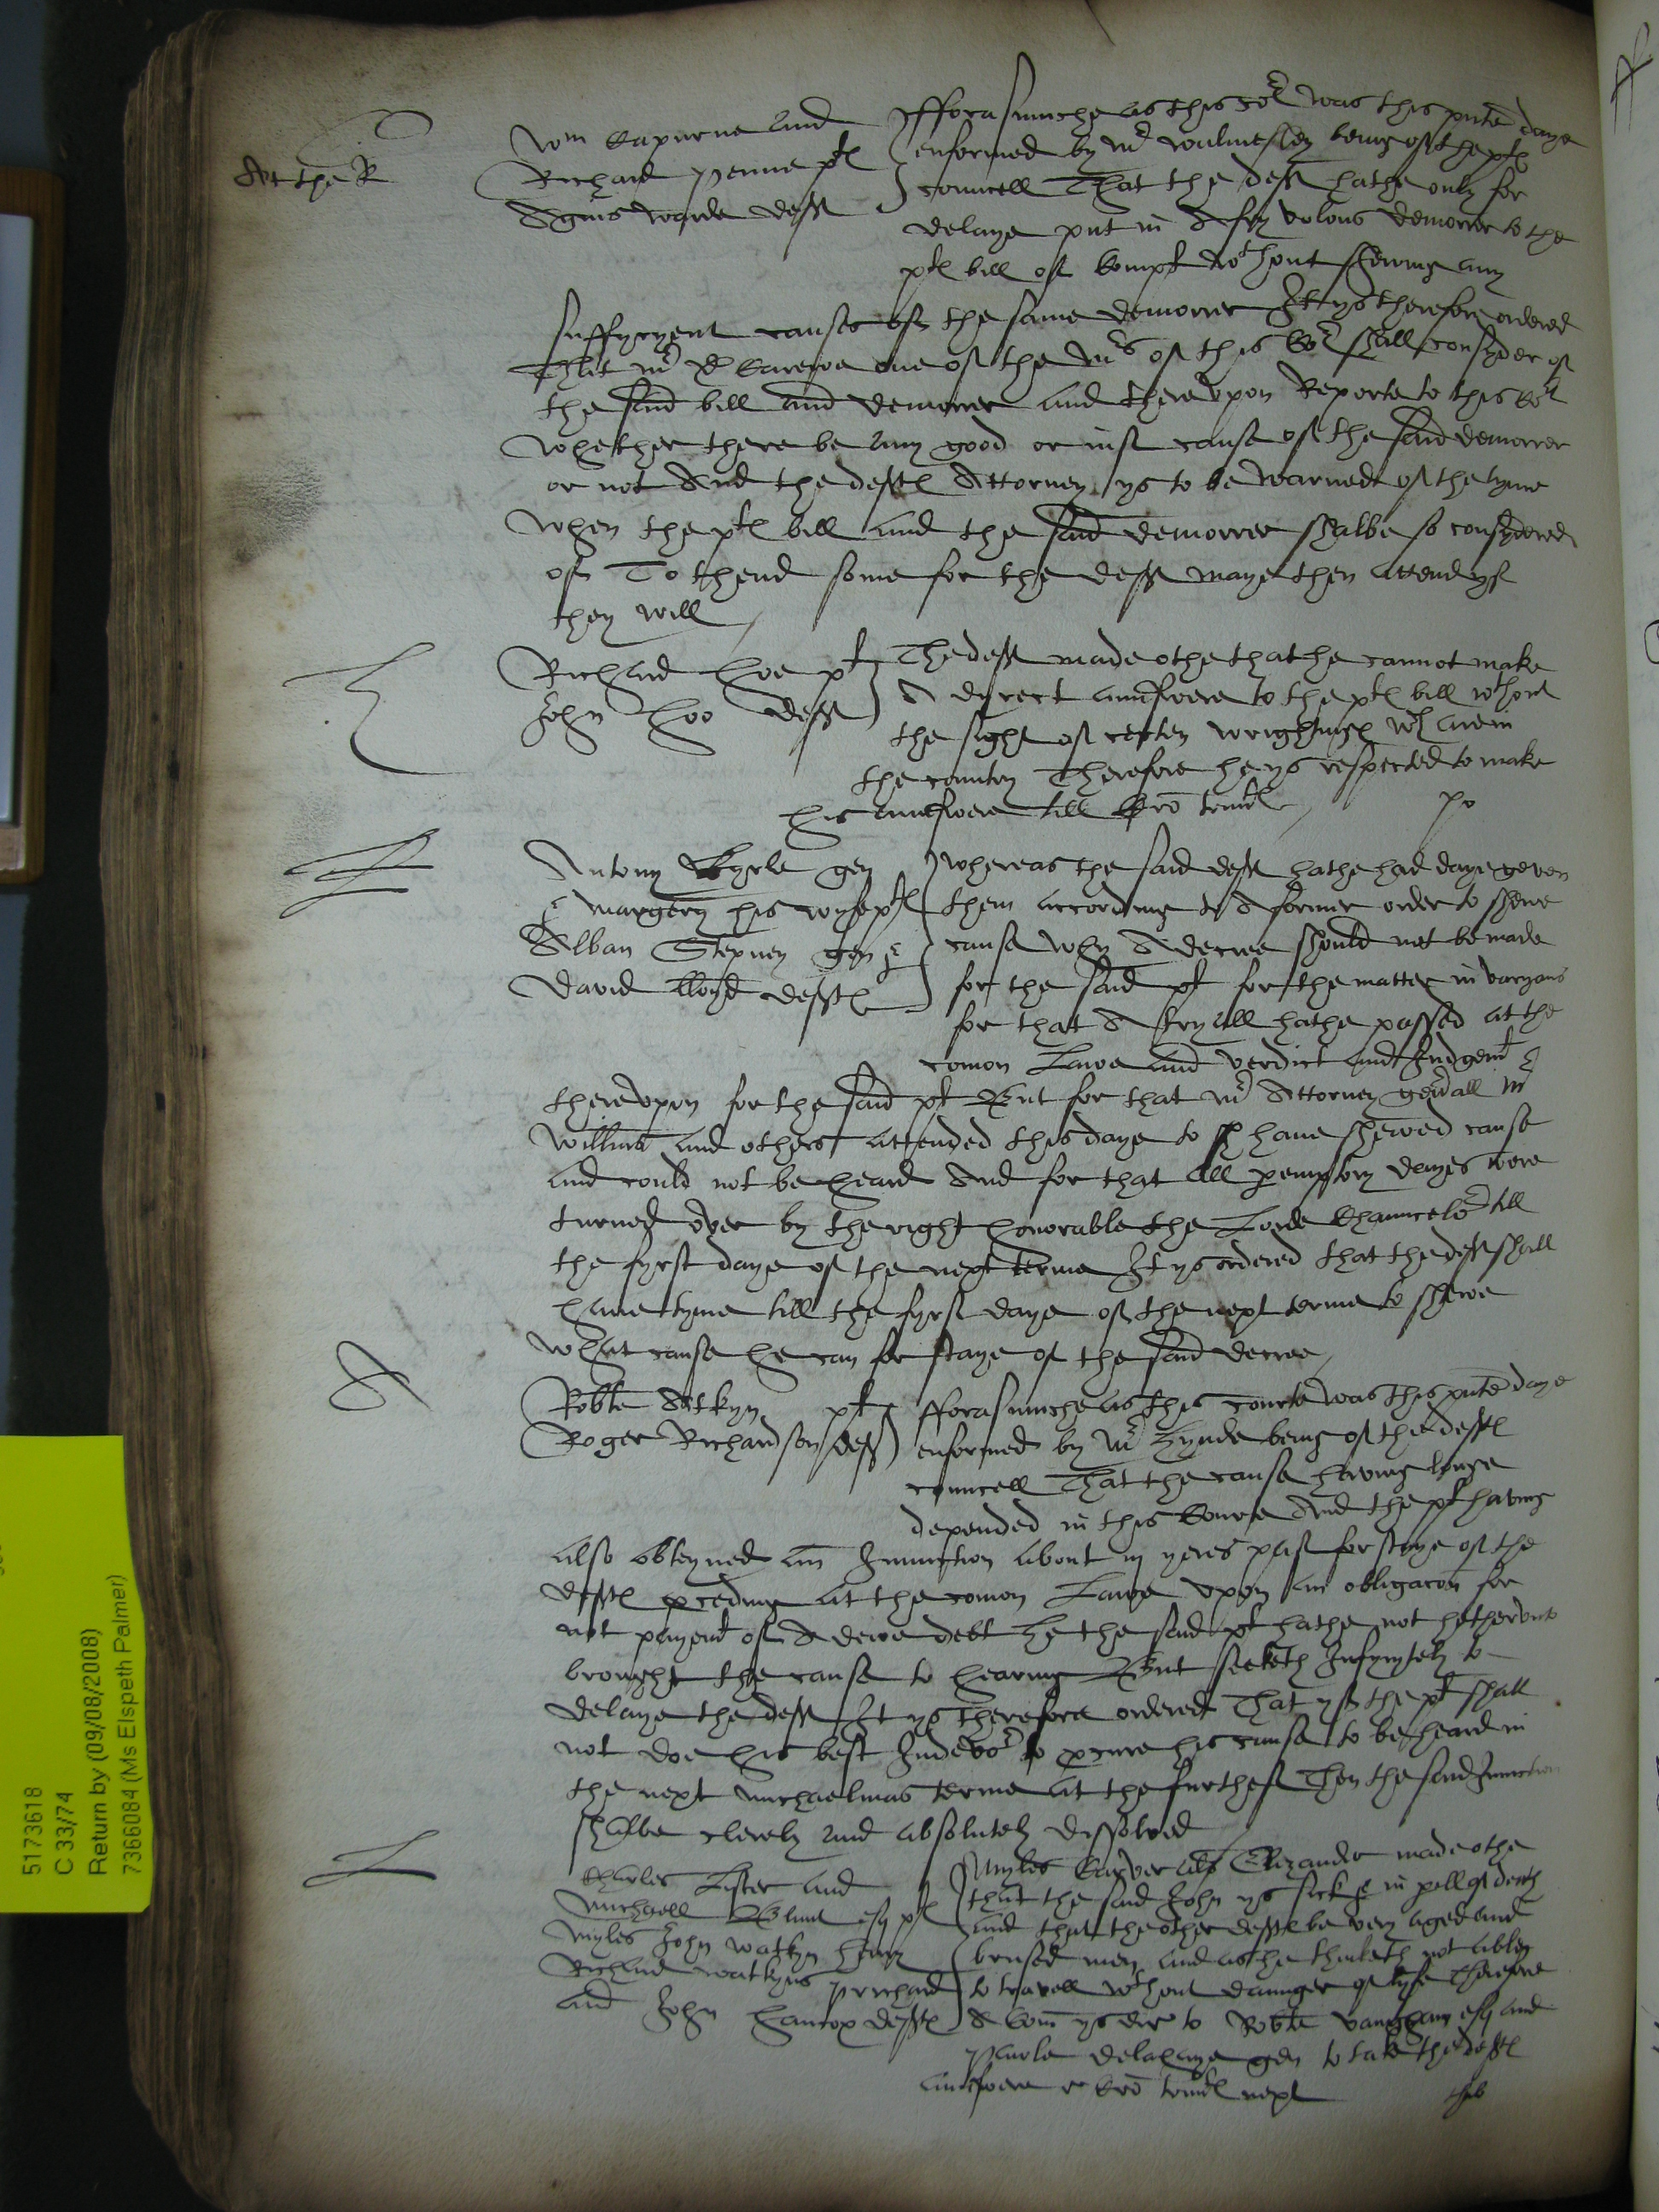 At the R
Wm Capurne and
Richard Penne pl
Agnis Warde deff
Fforasmuche as this Cor was this pnte daye
enformed by Mr Wulmesley being of the pl
councell That the deff hathe only for
delaye put in A fryvolous demorrer to the
pl bill of Compt wthout shewing any
suffycyent causes of the same demorrer It ys therefore ordered
That Mr D Carewe one of the Mrs of this Cort shall consyder of
the said bill and demorrer and therevpon Reporte to this Cort
whether there be any good or iust cause of the said demorrer
or not And the deffes Attorney ys to be warned of the tyme
when the pl bill and the said demorrer shalbe so consydered
of To thend some for the deff maye then attend yf
they will
Richard Hoe pl
John Hoo deff
The deff made othe that he cannot make
A dyrect aunswere to the pl bill wthout
the sight of certen wrightinges wch are in
the country Therefore he ys respected to make
his aunswere till Cro trinit
po
Antony Kyrle gen
& Margery his wyfe pl
Alban Stepney gen &
David lloyd deffes
Whereas the said deff hathe had daye geven
them according to A former order to shewe
cause why A decree should not be made
for the said pl for the matter in varyans
for that A tryall hathe passed at the
comon Lawe and verdict and Iudgemt
therevpon for the said pl But for that Mr Attorney gerall Mr
Willms and others attended this daye to sh have shewed cause
and could not be heard And for that all peremptory dayes were
turned over by the right honorable the Lorde Chauncelor till
the fyrst daye of the next terme It ys ordered that the deff shall
have tyme till the fyrst daye of the next terme to shewe
what cause he can for staye of the said decree
A
Robte Atkyn pl
Roger Richardson deff
Fforasmuche as this courte was this pnte daye
enformed by Mr Hynde being of the deffes
councell That the cause having longe
depended in this Courte And the pl having
also obteyned an Iniunction about iij yeres past for staye of the
deffes pceding at the comon Lawe vpon an obligacon for
not paymt of A dewe debt He the said pl hathe not hethervnto
brought the cause to hearing But seeketh Infynytely to
delaye the deff It ys therefore ordered That yf the pl shall
not doe his best Indevor to pcure his cause to be heard in
the next michaelmas terme at the furthest Then the said Iniunction
shalbe clerely and absolutely dissolved
L
Charles Lister and
Michaell Blunt esq pl
Myles John Watkyn Henry
Richard Watkyns Prichard
and John Hancox deffes
Myles Carver als Elizander made othe
that the said John ys sick & in pill of death
and that the other deffes be very aged and
brused men and as he thinketh not able
to travell wthout daunger of lyfe Therefore
A Com ys dir to Robte Vaughan esq and
Paule Delahaye gen to take the deffes
aunswere re Cro trinit next
5173618
C 33/74
Return by (09/08/2008)
7366084 (Ms Elspeth Palmer)